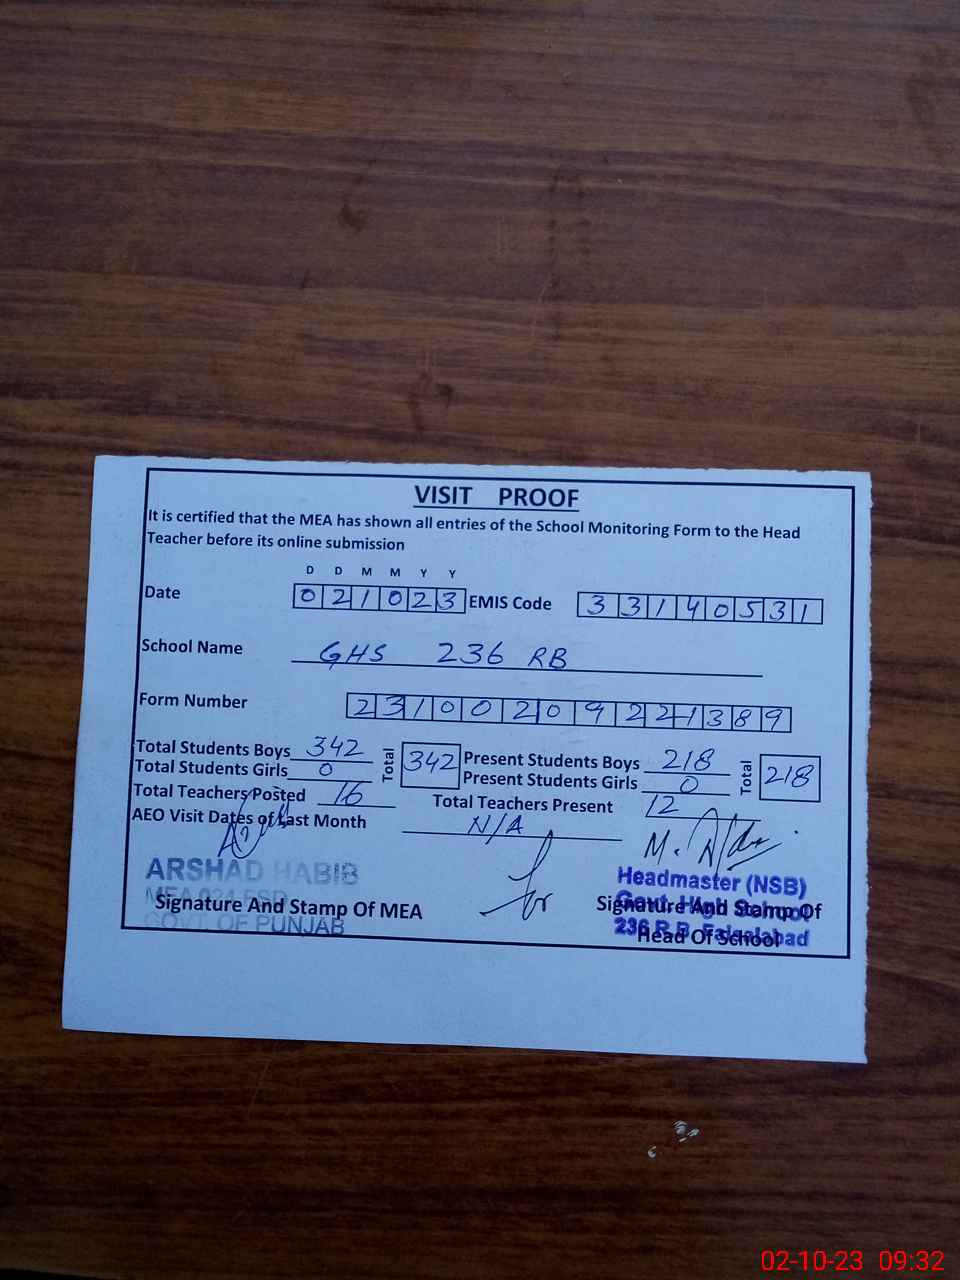 VISIT PROOF
It is certified that the MEA has shown all entries of the School Monitoring Form to the Head
Teacher before its online submission
D D M M Y Y
Date 0 2 1 0 2 3 EMIS Code 3 3 1 4 0 5 3 1
School Name GHS 236 RB
Form Number 2 3 1 0 0 2 0 9 2 2 1 3 8 9
Total Students Boys 342 Total 342 Present Students Boys 218 Total 218
Total Students Girls 0 Present Students Girls 0
Total Teachers Posted 16 Total Teachers Present 12
AEO Visit Dates of Last Month N/A
ARSHAD HABIB
MEA
GOVT. OF PUNJAB
Signature And Stamp Of MEA
for
M.
Headmaster (NSB)
Govt. High School
236 R.B. Faisalabad
Signature And Stamp Of
Head Of School
02-10-23 09:32